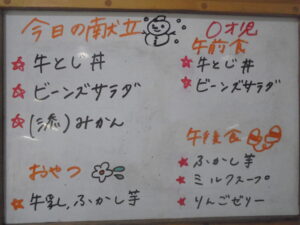 今日の献立
☆牛とじ丼
☆ビーンズサラダ
☆(添)みかん
おやつ
★牛乳,ふかし芋
0才児
午前食
★牛とじ丼
★ビーンズサラダ
午後食
★ふかし芋
★ミルクスープ
★りんごゼリー